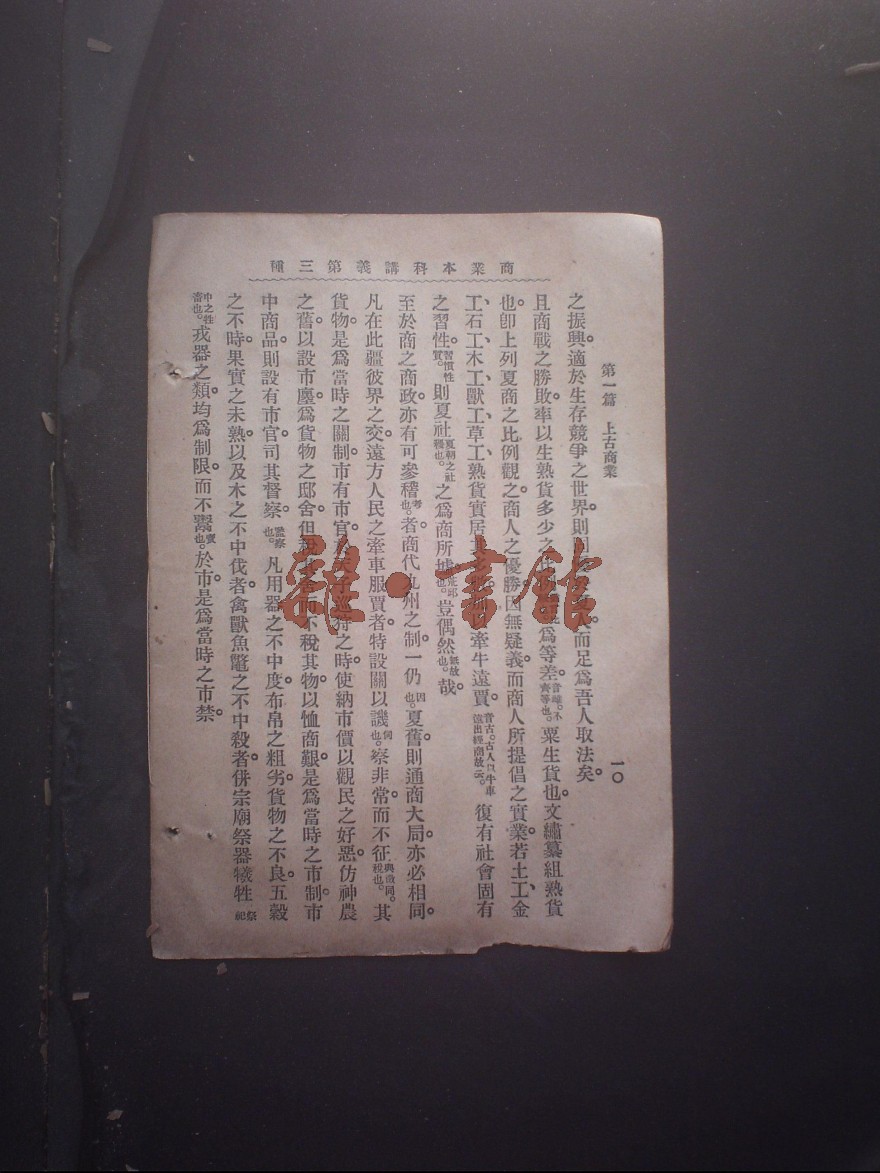 商業本科講義第三種
第一篇 上古商業
一〇
之振興。適於生存競爭之世界。則 人而足爲吾人取法矣。
且商戰之勝敗。率以生熟貨多少之 爲等差。音雌。不齊等也。粟生貨也。文繡纂組熟貨
也。卽上列夏商之比例觀之。商人之優勝。因無疑義。而商人所提倡之實業。若土工、金
工、石工、木工、獸工、草工、熟貨實居 牽牛遠賈。賈音古。古人以牛車遠出經商故云。復有社會固有
之習性。習慣性質。則夏社夏朝之社稷也。之爲商所墟。荒邱也。豈偶然無故也。哉。
至於商之商政。亦有可參稽考也。者。商代九州之制。一仍因也。夏舊。則通商大局。亦必相同。
凡在此疆彼界之交。遠方人民之牽車服賈者。特設關以譏伺也。察非常。而不征與徵同。稅也。其
貨物。是爲當時之關制。市有市官。 天子巡狩之時。使納市價以觀民之好惡。仿神農
之舊。以設市廛爲貨物之邸舍。但稅其舍而不稅其物。以恤商艱。是爲當時之市制。市
中商品。則設有市官司其督察。監察也。凡用器之不中度。布帛之粗劣。貨物之不良。五穀
之不時。果實之未熟。以及木之不中伐者。禽獸魚鼈之不中殺者。併宗廟祭器犧牲祭祀
中之牲畜也。戎器之類。均爲制限。而不鬻賣也。於市。是爲當時之市禁。
雜·書館